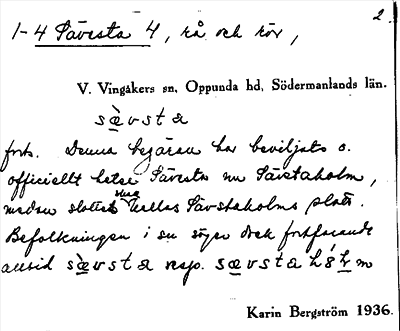 2.
1-4 Sävesta 4, rå och rör,
V. Vingåkers sn, Oppunda hd, Södermanlands län.
sæ̀vsta
forts. Denna begäran har beviljats o.
officiellt heter Sävesta nu Sävstaholm,
medan slottet kallas Sävstaholms slott.
Befolkningen i sn säger dock fortfarande
alltid sæ̀vsta resp. sævsta
Karin Bergström 1936.